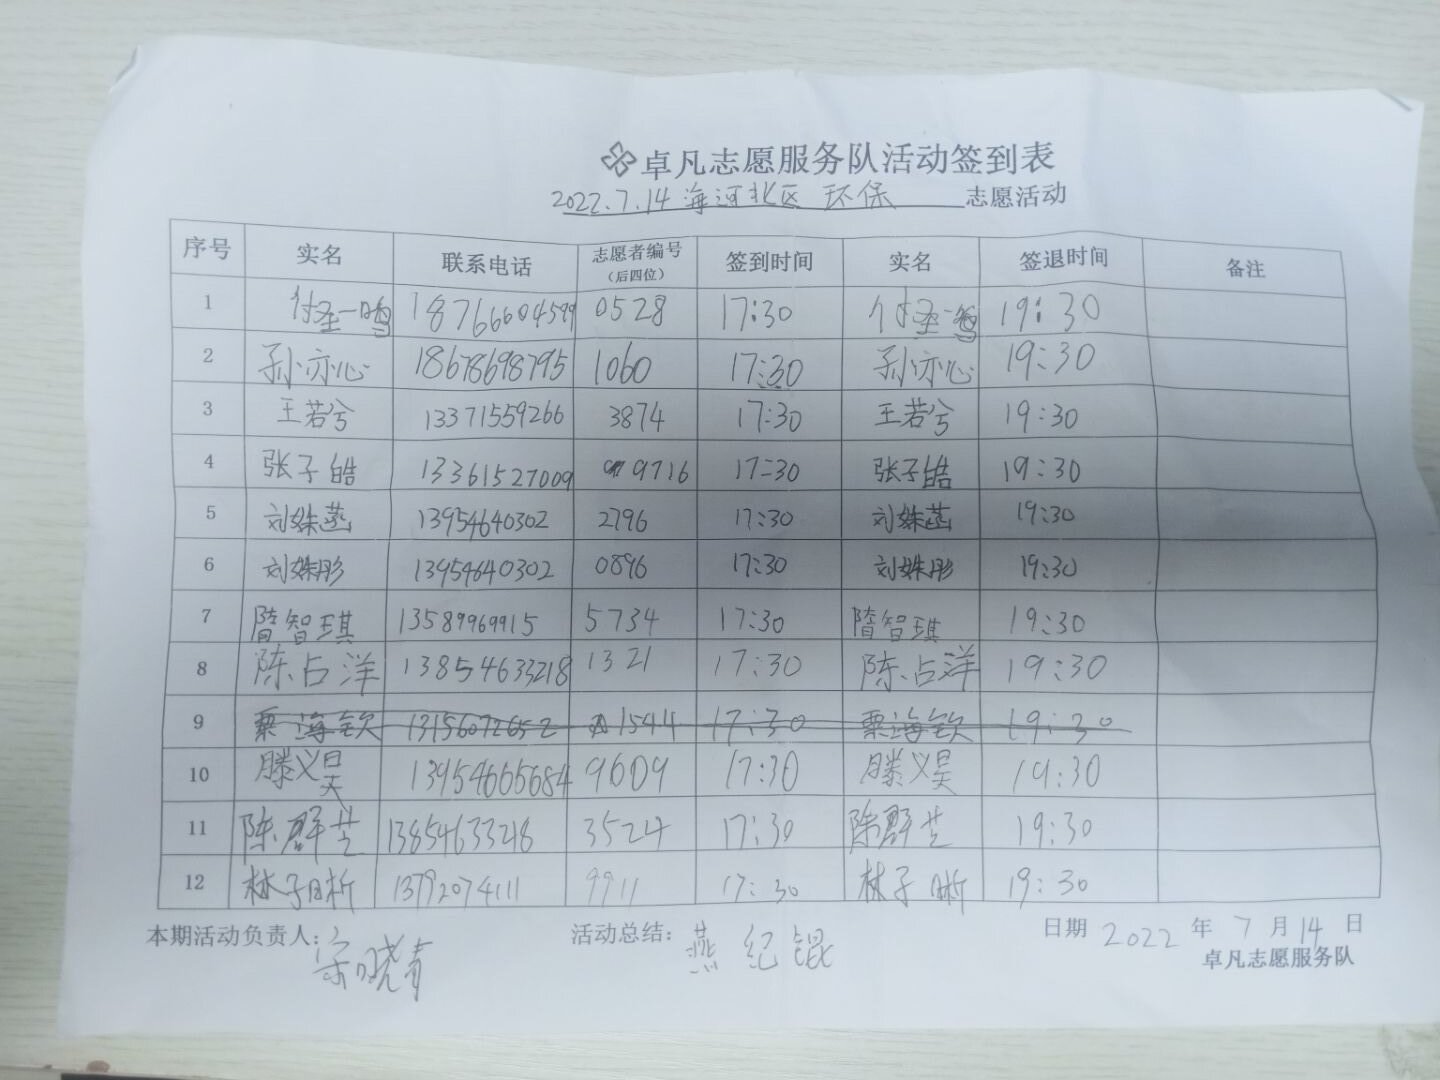 卓凡志愿服务队活动签到表
2022.7.14 海河北区 环保 志愿活动
序号 实名 联系电话 志愿者编号（后四位） 签到时间 实名 签退时间 备注
1 付圣一鸣 18766604599 0528 17:30 付圣一鸣 19:30
2 孙亦心 18678698795 1060 17:30 孙亦心 19:30
3 王若兮 13371559266 3874 17:30 王若兮 19:30
4 张子皓 13361527009 9716 17:30 张子皓 19:30
5 刘姝菡 13954640302 2796 17:30 刘姝菡 19:30
6 刘姝彤 13954640302 0896 17:30 刘姝彤 19:30
7 隋智琪 13589969915 5734 17:30 隋智琪 19:30
8 陈占洋 13854633218 1321 17:30 陈占洋 19:30
9 粟海钦 13156072652 1544 17:30 粟海钦 19:30
10 滕义昊 13954665684 9609 17:30 滕义昊 19:30
11 陈群芝 13854633218 3524 17:30 陈群芝 19:30
12 林子晰 13792074111 9911 17:30 林子晰 19:30
本期活动负责人：宗晓青 活动总结：燕纪锟 日期 2022 年 7 月 14 日
卓凡志愿服务队